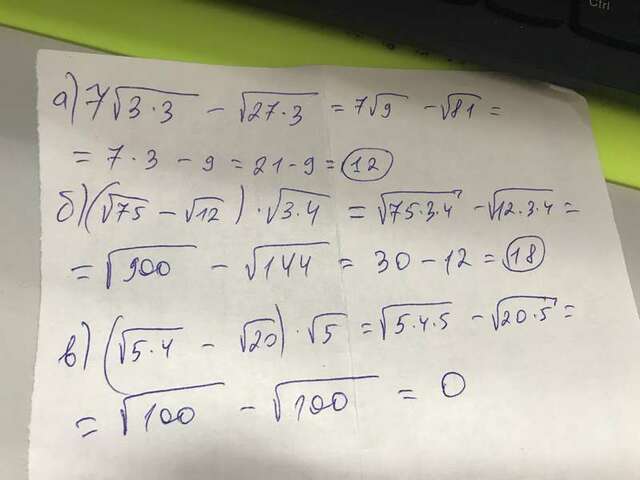 Ctrl
а) 7√3·3 − √27·3 = 7√9 − √81 =
= 7·3 − 9 = 21 − 9 = 12
б) (√75 − √12) · √3·4 = √75·3·4 − √12·3·4 =
= √900 − √144 = 30 − 12 = 18
в) (√5·4 − √20) · √5 = √5·4·5 − √20·5 =
= √100 − √100 = 0